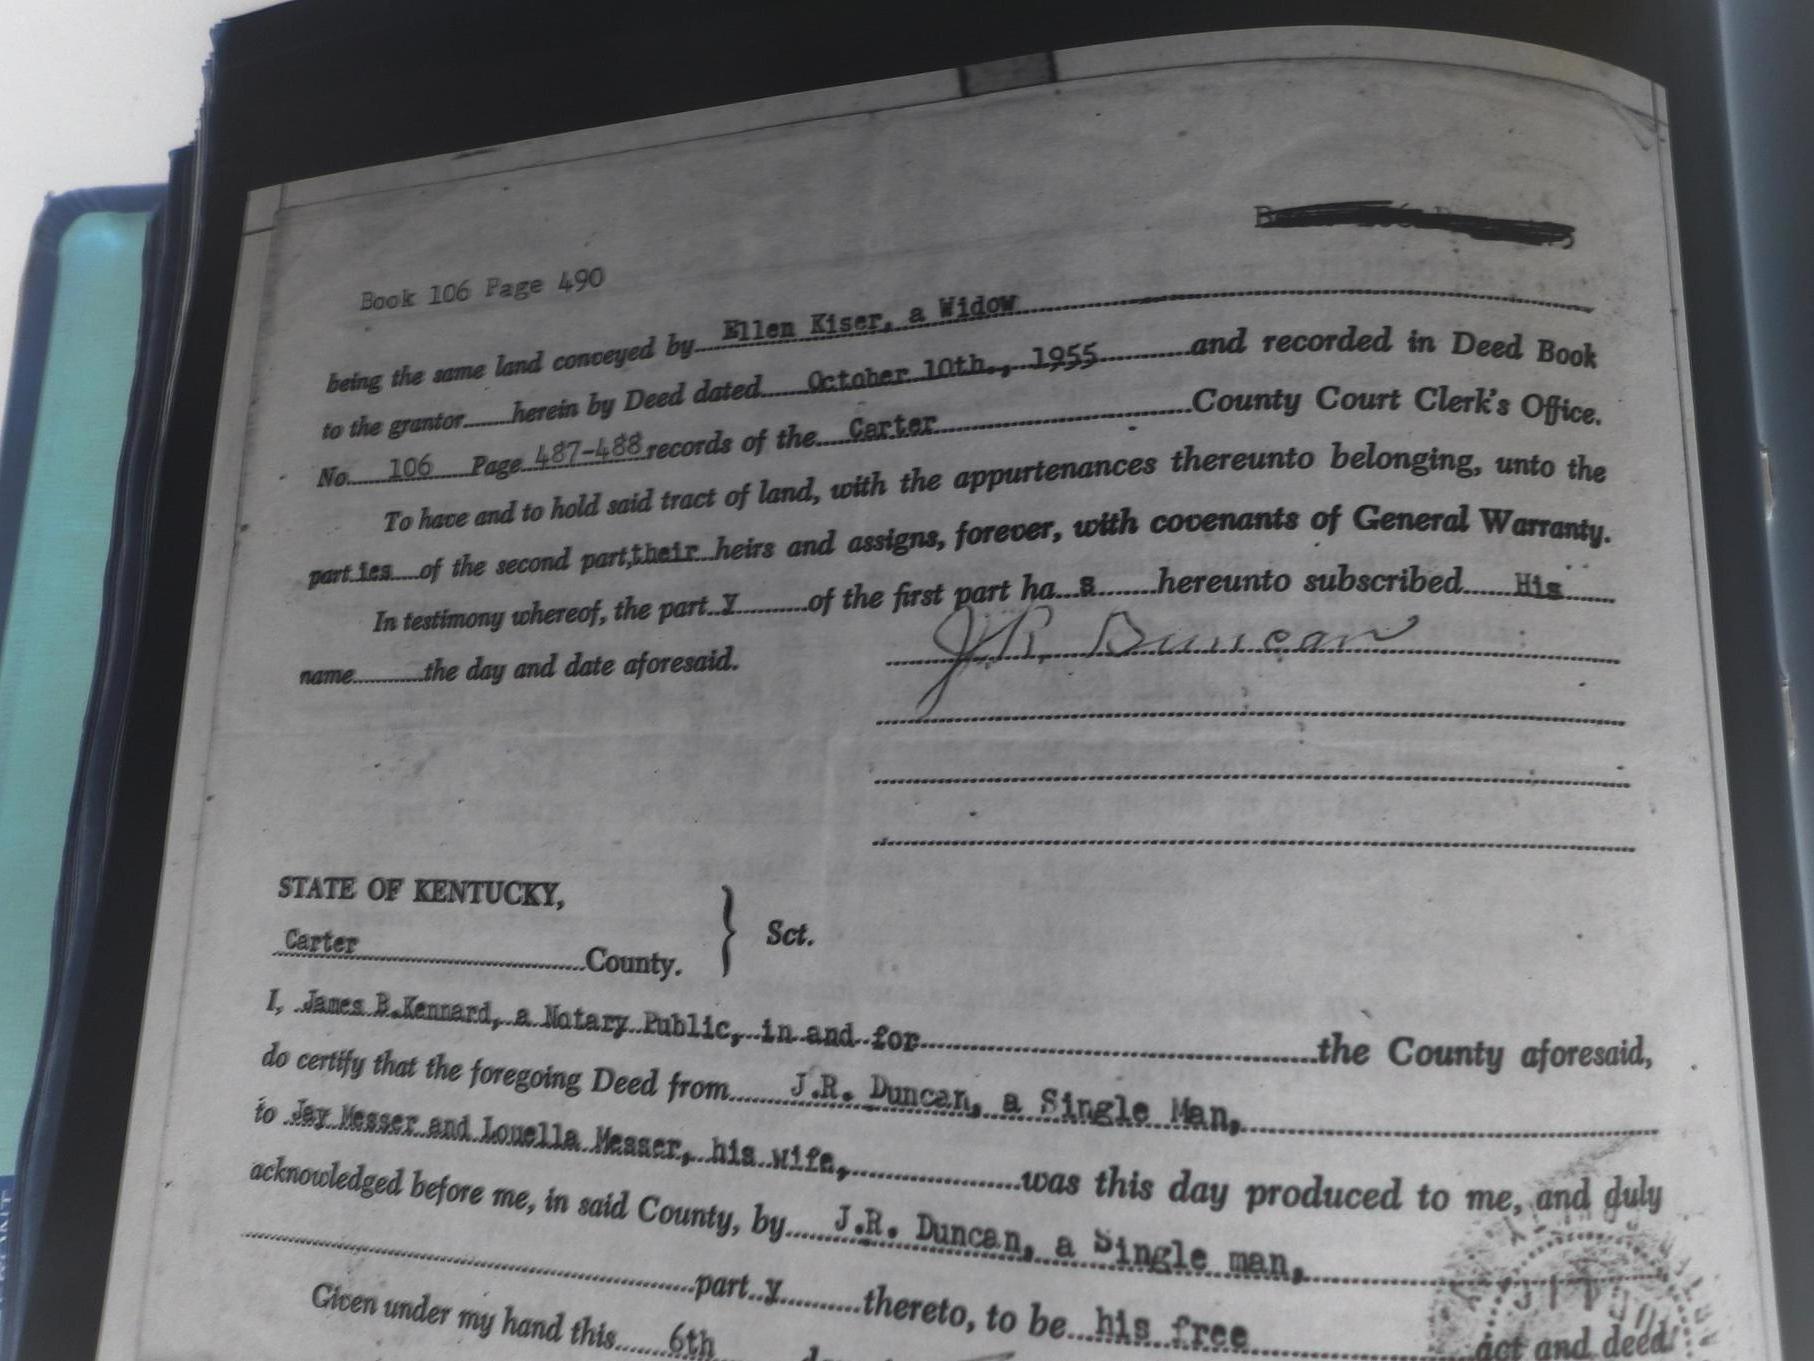 Book 106 Page 490
being the same land conveyed by Ellen Kiser, a Widow
to the grantor herein by Deed dated October 10th., 1955 and recorded in Deed Book
No. 106 Page 487-488 records of the Carter County Court Clerk's Office.
To have and to hold said tract of land, with the appurtenances thereunto belonging, unto the
part ies of the second part, their heirs and assigns, forever, with covenants of General Warranty.
In testimony whereof, the part y of the first part ha s hereunto subscribed His
name the day and date aforesaid.
J.R. Duncan
STATE OF KENTUCKY,
Carter County. } Sct.
I, James B.Kennard, a Notary Public, in and for the County aforesaid,
do certify that the foregoing Deed from J.R. Duncan, a Single Man,
to Jay Messer and Louella Messer, his wife, was this day produced to me, and duly
acknowledged before me, in said County, by J.R. Duncan, a Single man,
part y thereto, to be his free act and deed
Given under my hand this 6th